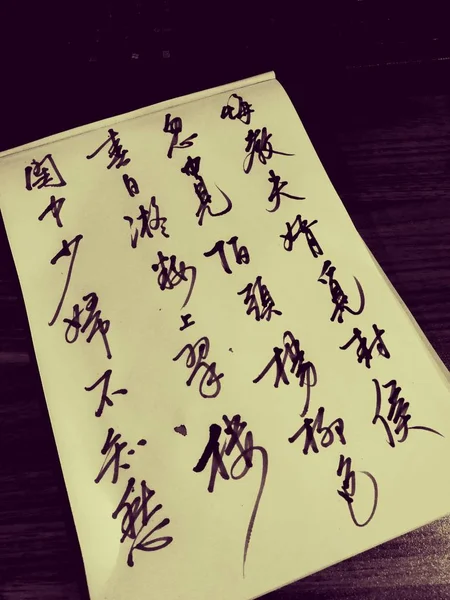 閨中少婦不知愁
春日凝妝上翠樓
忽見陌頭楊柳色
悔教夫婿覓封侯